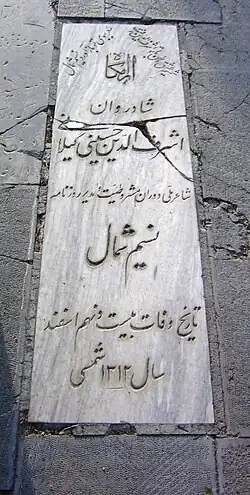 آرامگاه
شادروان
اشرف الدین حسینی گیلا
شاعر ملی دوران مشروطیت و مدیر روزنامه
نسیم شمال
تاریخ وفات بیست و نهم اسفند
سال ۱۳۱۲ شمسی